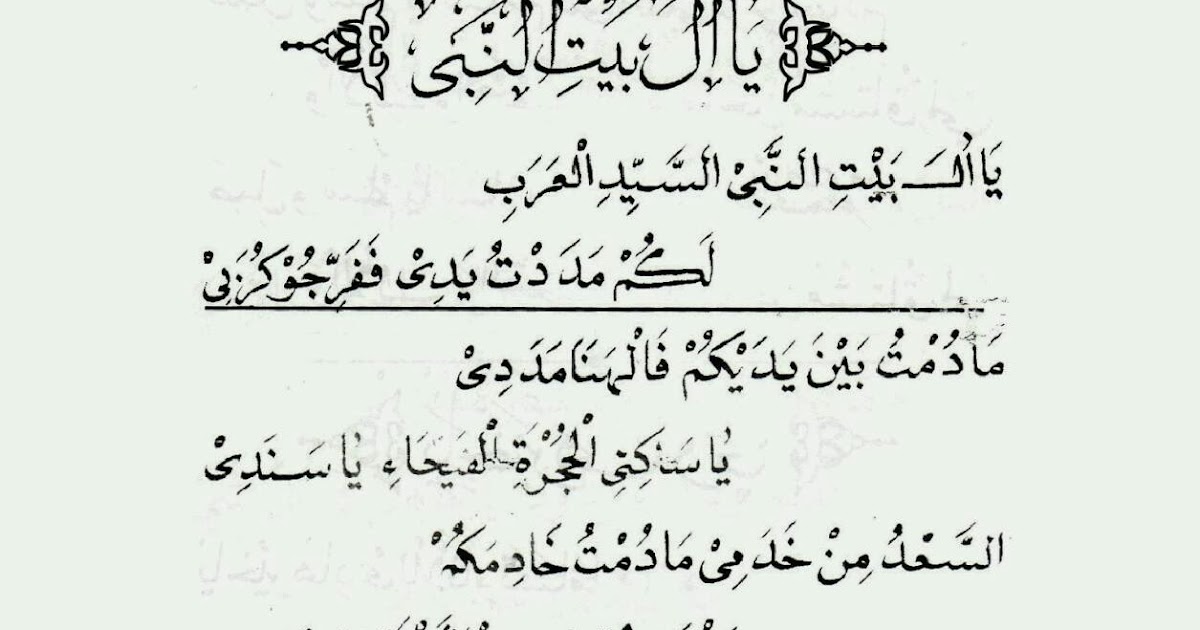 يَا اٰلَ بَيْتِ النَّبِى
يَا اٰلَ بَيْتِ النَّبِيْ السَّيِّدِ الْعَرَبِ
لَكُمْ مَدَدْتُ يَدِيْ فَفَرِّجُوْ كُرَبِيْ
مَا دُمْتُ بَيْنَ يَدَيْكُمْ فَالْهَنَا مَدَدِيْ
يَا سَاكِنِى الْحُجْرَةِ الْفَيْحَاءِ يَا سَنَدِيْ
السَّعْدُ مِنْ خَدَمِيْ مَا دُمْتُ خَادِمَكُمْ